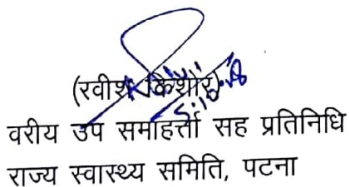 (रवीश किशोर)
वरीय उप समाहर्त्ता सह प्रतिनिधि
राज्य स्वास्थ्य समिति, पटना